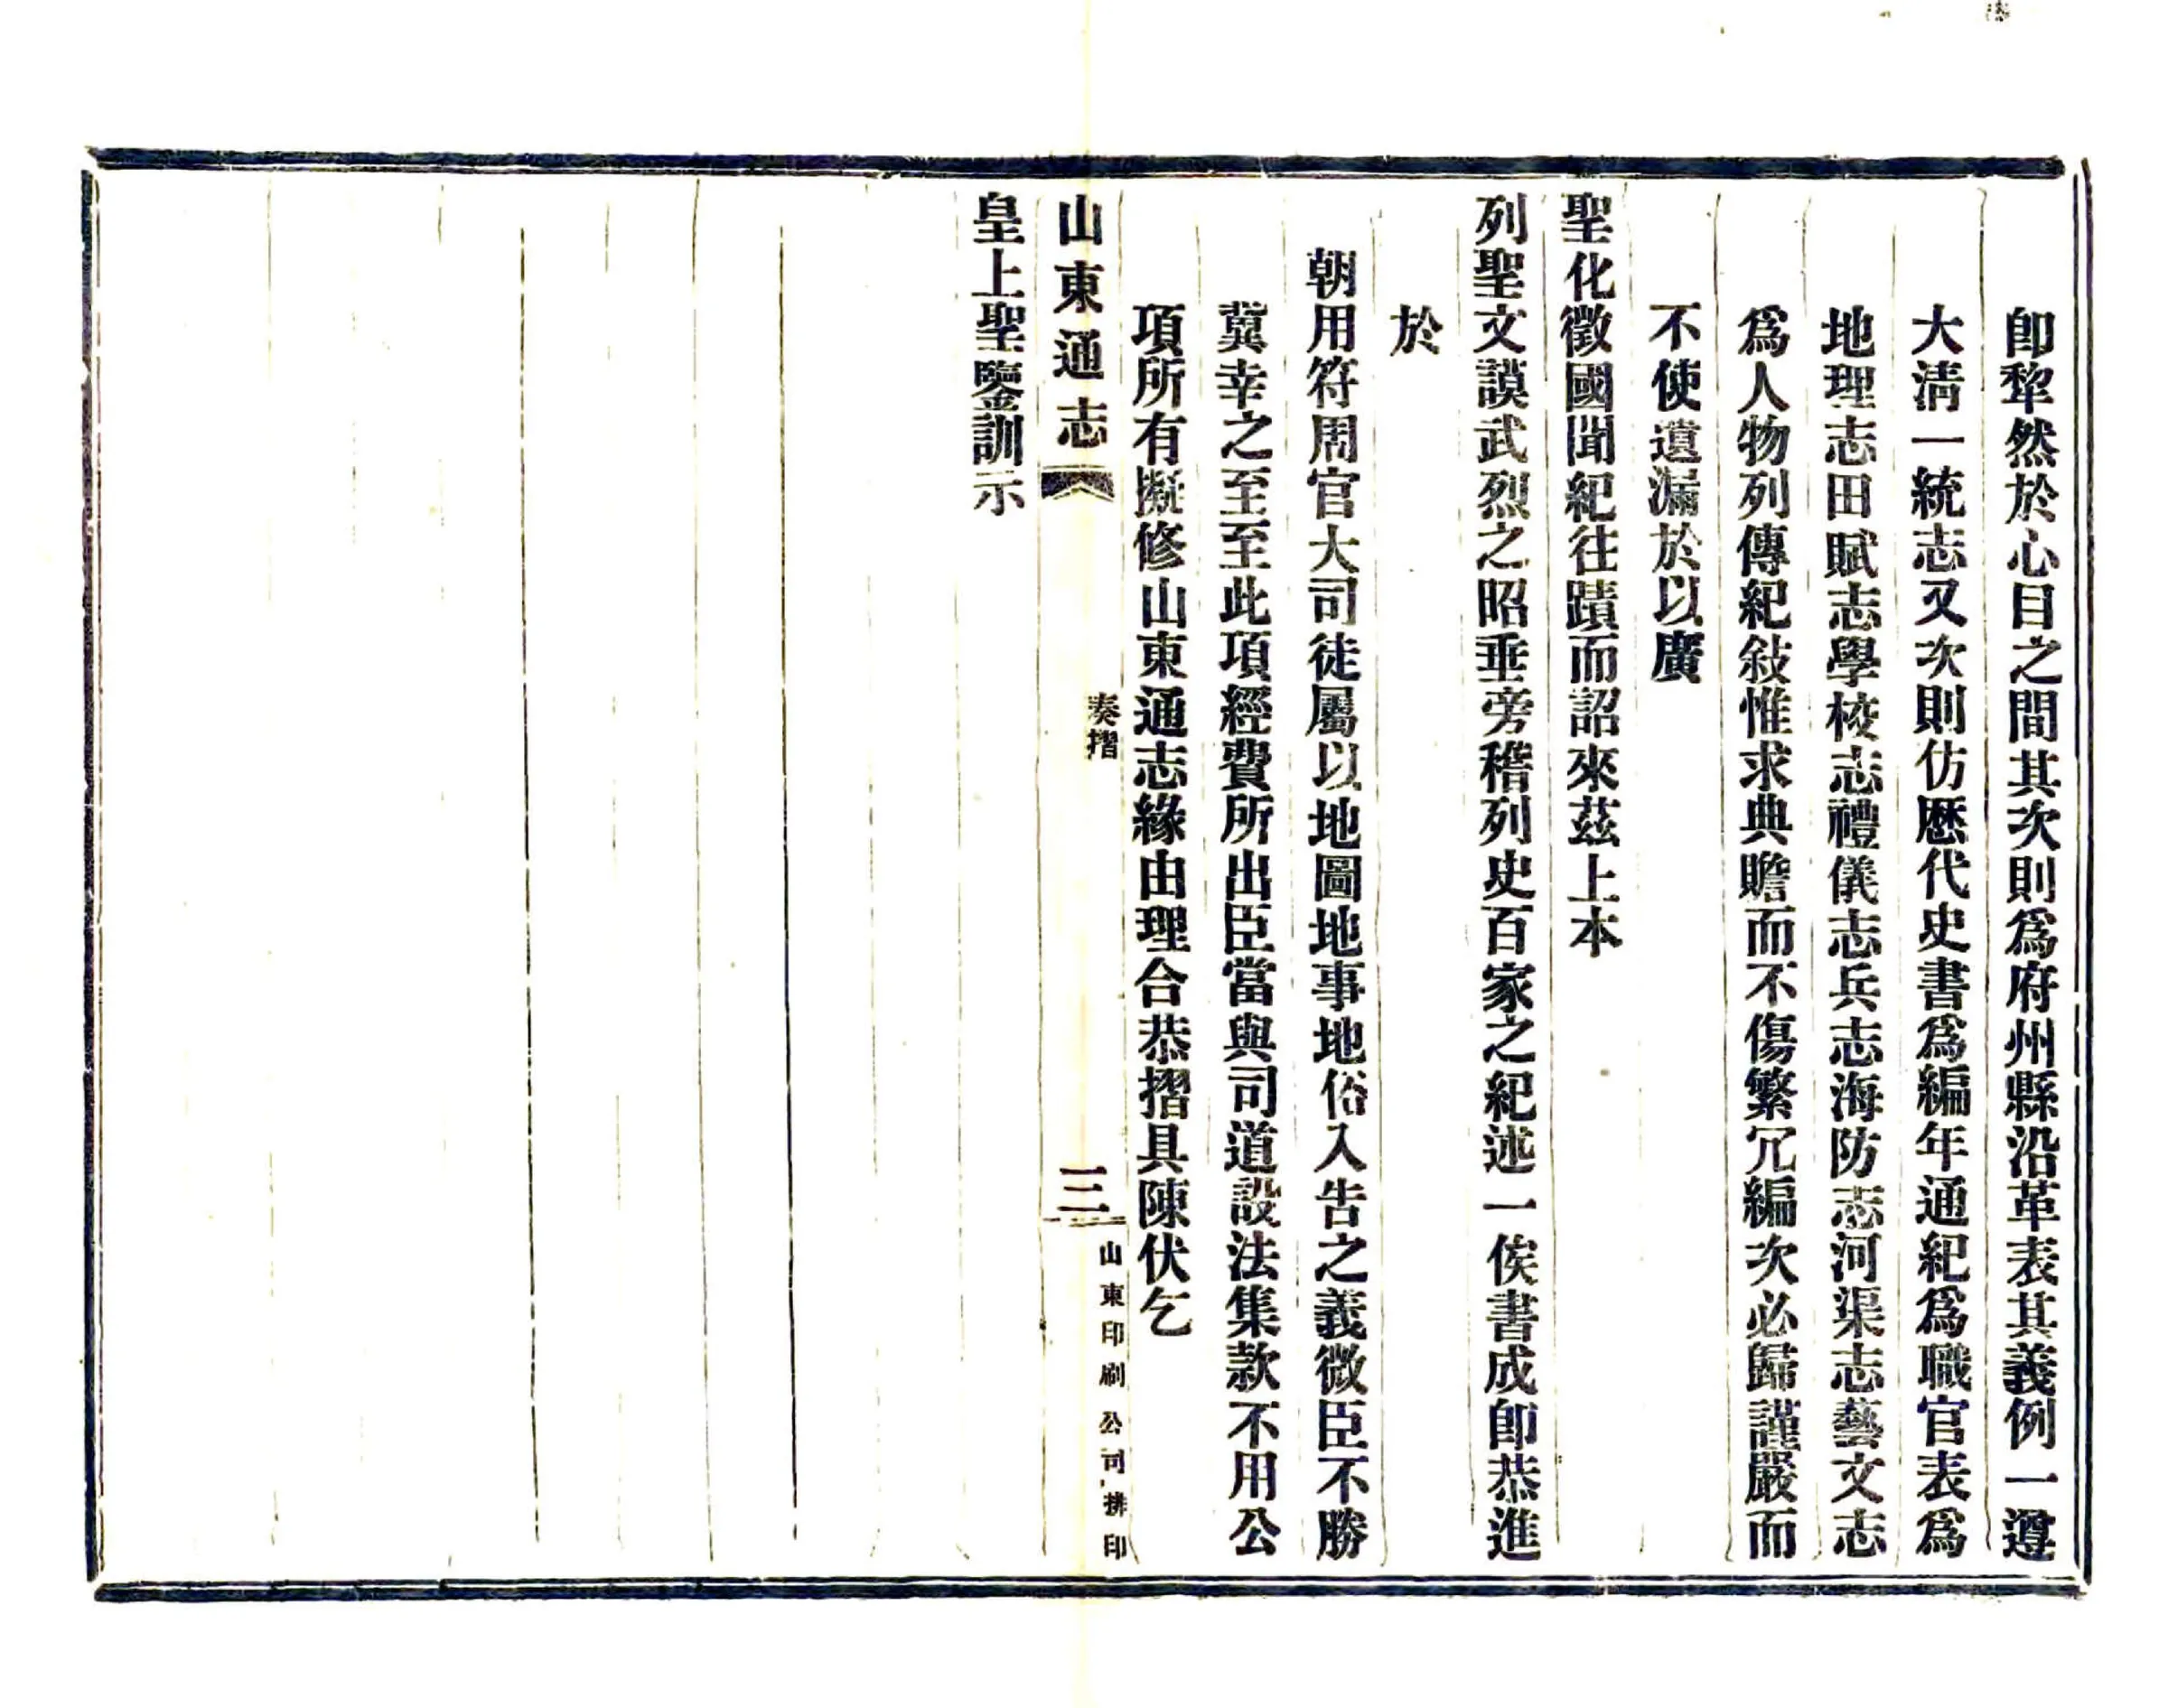 卽犂然於心目之間其次則爲府州縣沿革表其義例一遵
大淸一統志又次則仿歷代史書爲編年通紀爲職官表爲
地理志田賦志學校志禮儀志兵志海防志河渠志藝文志
爲人物列傳紀敍惟求典贍而不傷繁冗編次必歸謹嚴而
不使遺漏於以廣
聖化徵國聞紀往蹟而詔來茲上本
列聖文謨武烈之昭垂旁稽列史百家之紀述一俟書成卽恭進
於
朝用符周官大司徒屬以地圖地事地俗入告之義微臣不勝
冀幸之至至此項經費所出臣當與司道設法集款不用公
項所有擬修山東通志緣由理合恭摺具陳伏乞
山東通志
奏摺
三
山東印刷公司排印
皇上聖鑒訓示